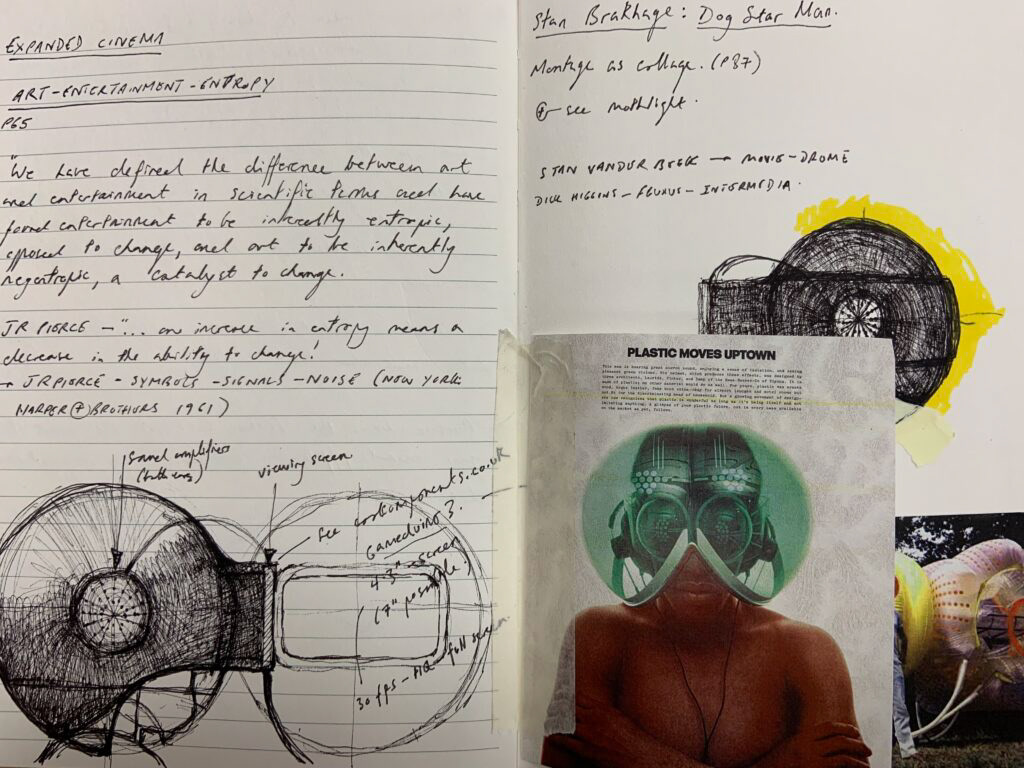 EXPANDED CINEMA
ART-ENTERTAINMENT-ENTROPY
P65
"We have defined the difference between art
and entertainment in scientific terms and have
found entertainment to be inherently entropic,
opposed to change, and art to be inherently
negentropic, a catalyst to change.
JR PIERCE — "... an increase in entropy means a
decrease in the ability to change!
→ JR PIERCE - SYMBOLS - SIGNALS - NOISE (NEW YORK
HARPER + BROTHERS 1961)
sound amplifiers
(both ears)
viewing screen
see coolcomponents.co.uk
Gameduino 3.
4.3" screen
(7" possible)
30 fps - HQ full screen
Stan Brakhage: Dog Star Man.
Montage as collage. (P87)
+ see mothlight.
STAN VANDER BEEK → MOVIE-DROME
DICK HIGGINS - FLUXUS - INTERMEDIA.
PLASTIC MOVES UPTOWN